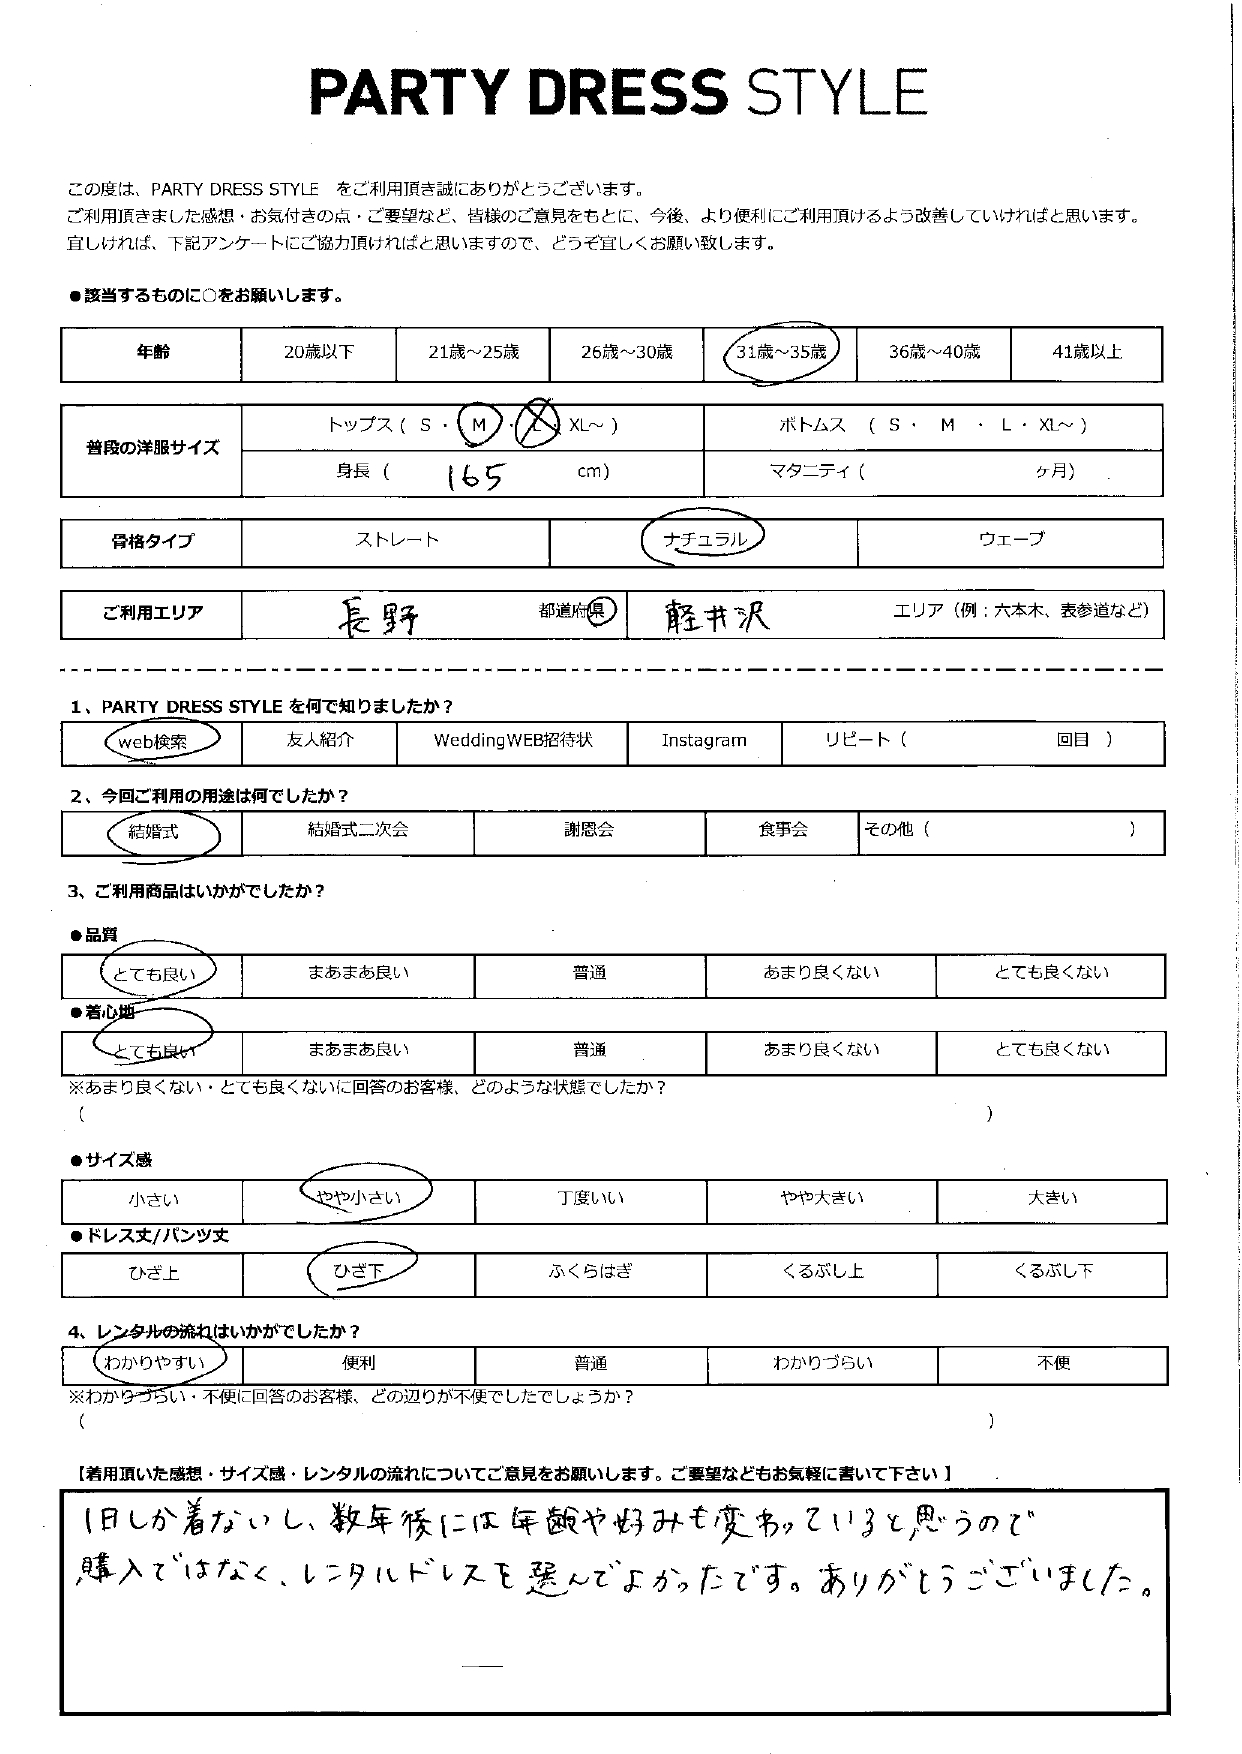 PARTY DRESS STYLE
この度は、PARTY DRESS STYLE をご利用頂き誠にありがとうございます。
ご利用頂きました感想・お気付きの点・ご要望など、皆様のご意見をもとに、今後、より便利にご利用頂けるよう改善していければと思います。
宜しければ、下記アンケートにご協力頂ければと思いますので、どうぞ宜しくお願い致します。
●該当するものに○をお願いします。
年齢 20歳以下 21歳～25歳 26歳～30歳 31歳～35歳 36歳～40歳 41歳以上
普段の洋服サイズ
トップス ( S ・ M ・ L ・ XL～ ) ボトムス ( S ・ M ・ L ・ XL～ )
身長 ( 165 cm) マタニティ ( ヶ月)
骨格タイプ ストレート ナチュラル ウェーブ
ご利用エリア 長野 都道府県 軽井沢 エリア（例：六本木、表参道など）
1、PARTY DRESS STYLE を何で知りましたか？
web検索 友人紹介 WeddingWEB招待状 Instagram リピート ( 回目 )
2、今回ご利用の用途は何でしたか？
結婚式 結婚式二次会 謝恩会 食事会 その他 ( )
3、ご利用商品はいかがでしたか？
●品質
とても良い まあまあ良い 普通 あまり良くない とても良くない
●着心地
とても良い まあまあ良い 普通 あまり良くない とても良くない
※あまり良くない・とても良くないに回答のお客様、どのような状態でしたか？
( )
●サイズ感
小さい やや小さい 丁度いい やや大きい 大きい
●ドレス丈/パンツ丈
ひざ上 ひざ下 ふくらはぎ くるぶし上 くるぶし下
4、レンタルの流れはいかがでしたか？
わかりやすい 便利 普通 わかりづらい 不便
※わかりづらい・不便に回答のお客様、どの辺りが不便でしたでしょうか？
( )
【着用頂いた感想・サイズ感・レンタルの流れについてご意見をお願いします。ご要望などもお気軽に書いて下さい 】
1日しか着ないし、数年後には年齢や好みも変わっていると思うので
購入ではなく、レンタルドレスを選んでよかったです。ありがとうございました。